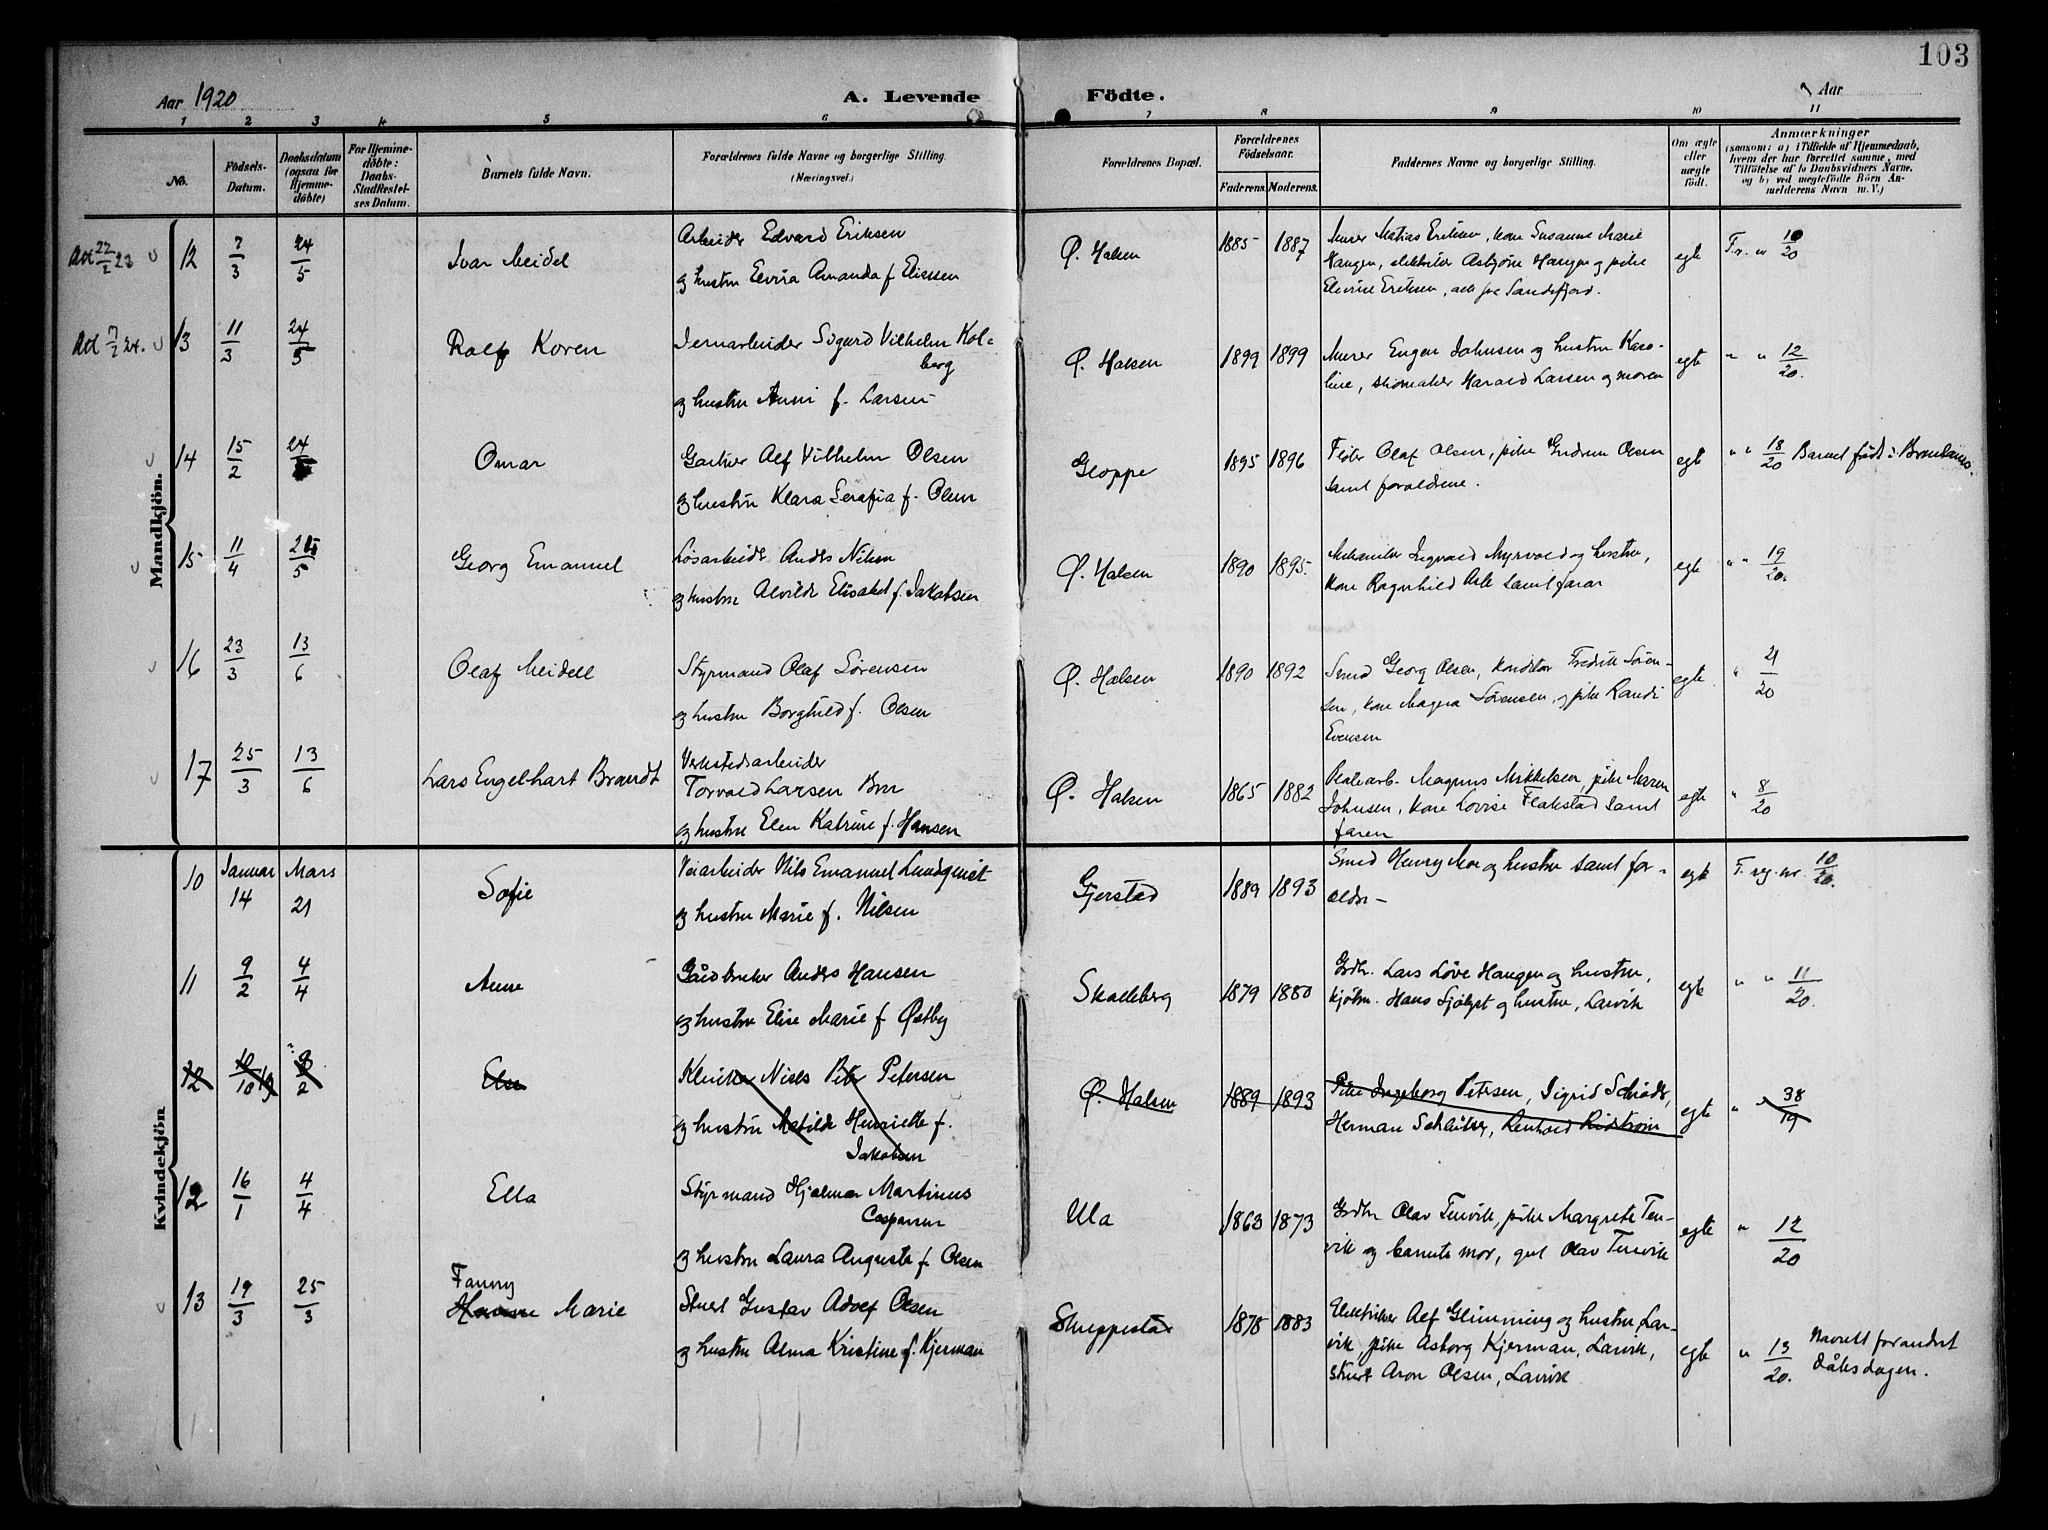 103
Aar 1920
A. Levende Födte.
Aar
1 2 3 4 5 6 7 8 9 10 11
No.
Födsels-Datum.
Daabsdatum (ogsaa for Hjemme-döbte)
For Hjemme-döbte: Daabs-Stadfæstel-ses Datum.
Barnets fulde Navn.
Forældrenes fulde Navne og borgerlige Stilling. (Næringsvei.)
Forældrenes Bopæl.
Forældrenes Födselsaar.
Faderens. Moderens.
Faddernes Navne og borgerlige Stilling.
Om ægte eller uægte födt.
Anmærkninger
(saasom: a) i Tilfælde af Hjemmedaab, hvem der har forrettet samme, med Tilföielse af to Daabsvidners Navne, og b) ved uægtefödte Börn An-melderens Navn m. V.)
Mandkjön.
Att 22/2 23 12 7/3 24/5 Ivar Meidel
Arbeider Edvard Eriksen
og hustru Elvira Amanda f. Elissen
Ø. Halsen 1885 1887
Murer Matias Eriksen, kone Susanne Marie
Haugen, elektriker Asbjørn Haugen og pike
Elevine Eriksen, alle fra Sandefjord.
egte Fr. " 10/20
Att 7/2 24. 13 11/3 24/5 Rolf Koren
Jernarbeider Sigurd Vilhelm Kol-
berg
og hustru Anni f. Larsen
Ø. Halsen 1899 1899
Murer Eugen Johnsen og hustru Karo-
line, skomaker Harald Larsen og moren
egte " " 12/20.
14 15/2 24/5 Omar
Gartner Alf Vilhelm Olsen
og hustru Klara Serafia f. Olsen
Gloppe 1895 1896
Olaf Olsen, pike Gudrun Olsen
samt forældrene.
egte " " 18/20 Barnet født i Brunlanes.
15 11/4 25/5 Georg Emanuel
Løsarbeider Anders Nilsen
og hustru Alvilde Elisabet f. Jakobsen
Ø. Halsen 1890 1895.
Mekaniker Ingvald Myrvold og hustru,
kone Ragnhild Arle samt faren
egte " " 19/20.
16 23/3 13/6 Olaf Meidell
Styrmand Olaf Sørensen
og hustru Borghild f. Olsen
Ø. Halsen 1890 1892
Smed Georg Olsen, konditor Fredrik Søren-
sen, kone Magna Sørensen, og pike Randi
Evensen
egte " 21/20
17 25/3 13/6 Lars Engelhart Brandt
Verkstedsarbeider
Torvald Larsen Bru
og hustru Elen Katrine f. Hansen
Ø. Halsen 1865 1882
Magnus Mikkelsen, pike Maren
Johnsen, kone Lovise Flakstad samt
faren
egte " 8/20
Kvindekjön
10 Januar 14 Mars 21 Sofie
Veiarbeider Nils Emanuel Lundquist
og hustru Marie f. Nilsen
Gjerstad 1889 1893
Smed Henry Moe og hustru samt for-
ældre
egte F. reg. nr. 10/20.
11 9/2 4/4 Anne
Gårdbruker Anders Hansen
og hustru Elise Marie f. Østby
Skalleberg 1879 1880
Grdbr. Lars Løve Haugen og hustru,
kjøbm. Hans Sjølyst og hustru, Larvik
egte " " 11/20.
12 10/10 19 8/2 Else
Niels Peter Petersen
og hustru Matilde Henriette f.
Jakobsen
Ø. Halsen 1889 1893
Pike Ingeborg Petersen, Sigrid Schrøder,
Herman Schlütter, Renhard Ridstrøm
egte " 38/19
12 16/1 4/4 Ella
Styrmand Hjalmar Martinus
Caspersen
og hustru Laura Auguste f. Olsen
Ula 1863 1873
Grdbr Olav Tenvik, pike Margrete Ten-
vik og barnets mor, gut Olav Tenvik
egte " 12/20
13 19/3 25/3 Fanny
Hanne Marie
Stuert Gustav Adolf Olsen
og hustru Alma Kristine f. Kjerman
Skreppestad 1878 1883
Elektriker Alf Glimming og hustru Lar-
vik, pike Asborg Kjerman, Larvik,
stuert Aron Olsen, Larvik
egte " 13/20. Navnet forandret
dåbsdagen.